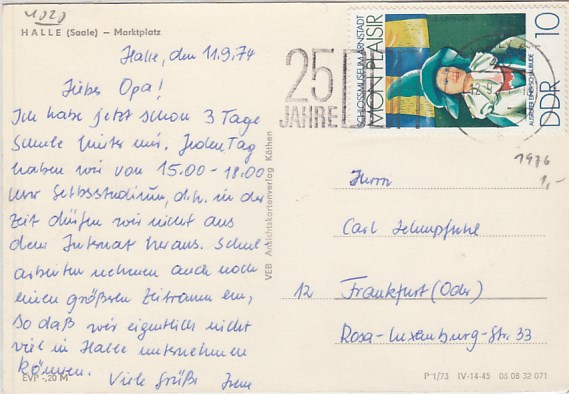 1020
HALLE (Saale) – Marktplatz
Halle, den 11.9.74
Lieber Opa!
Ich habe jetzt schon 3 Tage
Schule hinter mir. Jeden Tag
haben wir von 15.00 - 18.00
Uhr Selbsstudium, d.h. in der
Zeit dürfen wir nicht aus
dem Internat heraus. Schul
arbeiten nehmen auch noch
einen größeren Zeitraum ein,
so daß wir eigentlich nicht
viel in Halle unternehmen
können.
Viele Grüße
EVP -,20 M
VEB Ansichtskartenverlag Köthen
25
JAHRE
SCHLOSSMUSEUM ARNSTADT
MON PLAISIR
AUGUSTE DOROTHEA
10
DDR
1976
1,-
Herrn
Carl
12 Frankfurt (Oder)
Rosa-Luxemburg-Str. 33
P 1/73 IV-14-45 05 08 32 071